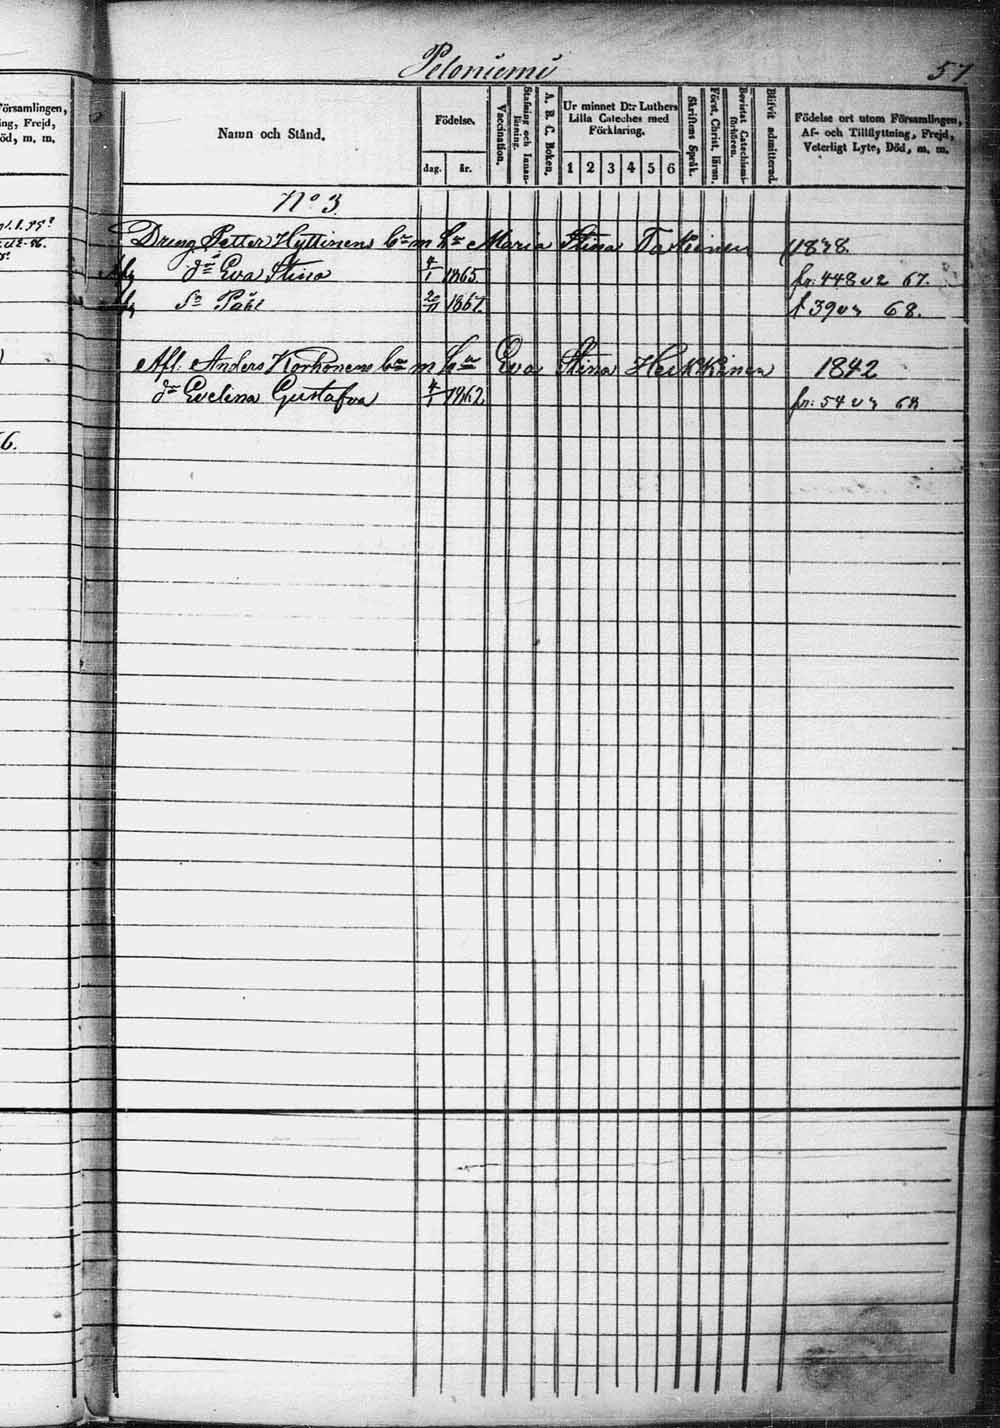 Peloniemi
57
Församlingen,
ing, Frejd,
öd, m. m.
Namn och Stånd.
Födelse.
dag. år.
Vaccination.
Stafning och Innanläsning.
A. B. C. Boken,
Ur minnet D:r Luthers
Lilla Cateches med
Förklaring.
1 2 3 4 5 6
Skriftens Språk.
Först. Christ. läran.
Bevistat Catechismiförhören.
Blifvit admitterad.
Födelse ort utom Församlingen,
Af- och Tillflyttning, Frejd,
Veterligt Lyte, Död, m. m.
No 3.
Dreng Petter Hyttinens bn m hu Maria Stina Tarkiainen 1838
dr Eva Stina 4/1 1865. fr: 448 v 2 67.
Sn Påhl 20/11 1867. f 39 68.
Afl: Anders Korhonens bn m hu Eva Stina Heikkinen 1842
dr Evelina Gustafva 4/1 1862 fr: 54 68
6.